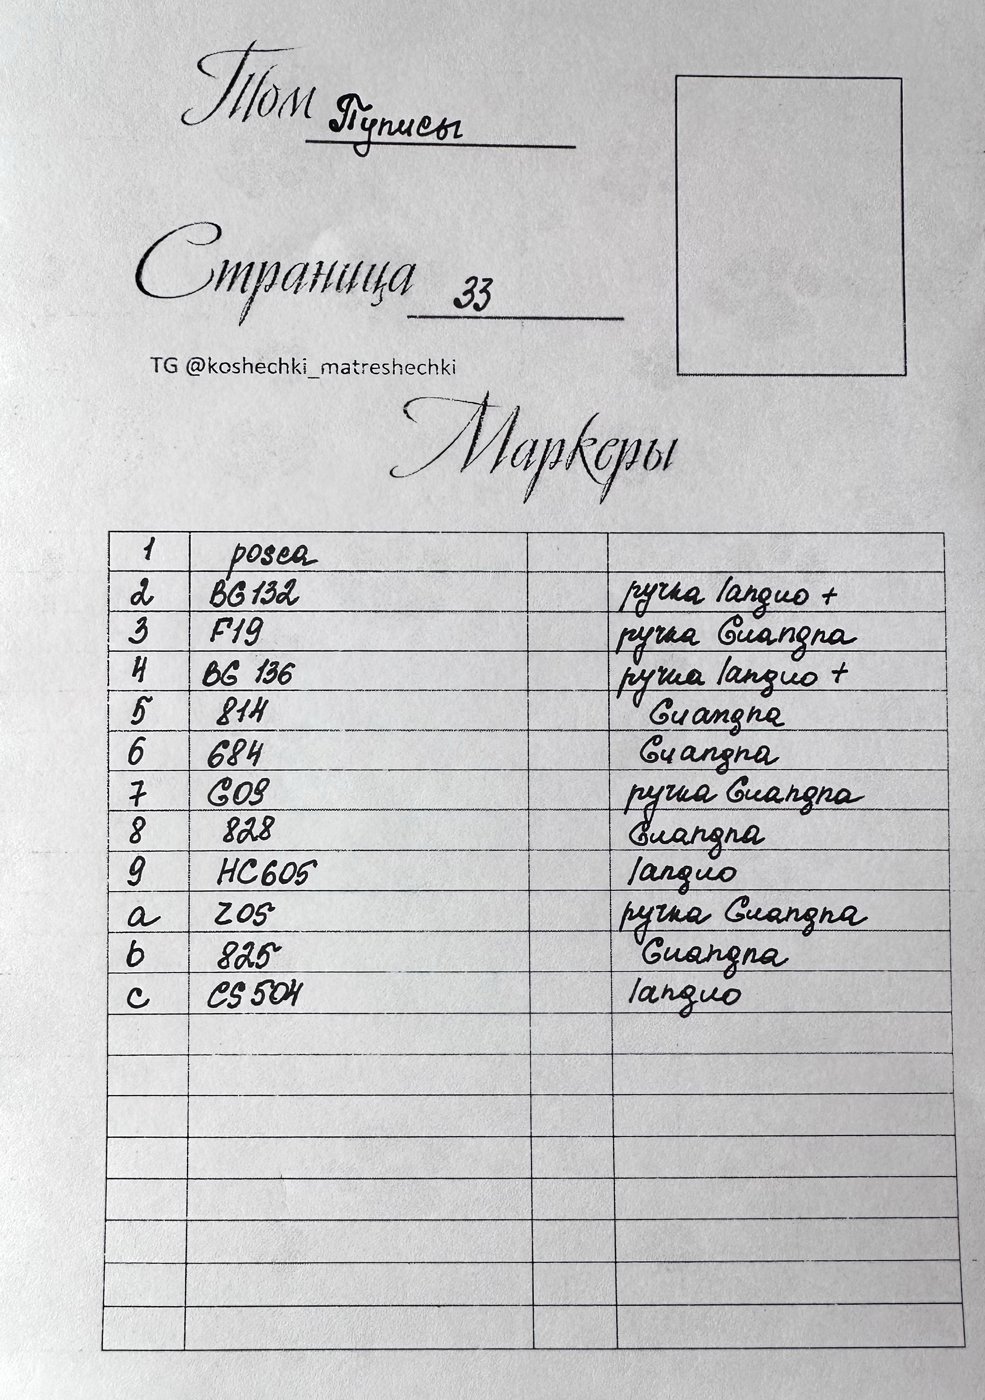 Том Пуписы
Страница 33
TG @koshechki_matreshechki
Маркеры
1 posca
2 BG 132 ручка languo +
3 F19 ручка Guangna
4 BG 136 ручка languo +
5 814 Guangna
6 684 Guangna
7 G09 ручка Guangna
8 828 Guangna
9 HC605 languo
a Z05 ручка Guangna
b 825 Guangna
c CS 504 languo